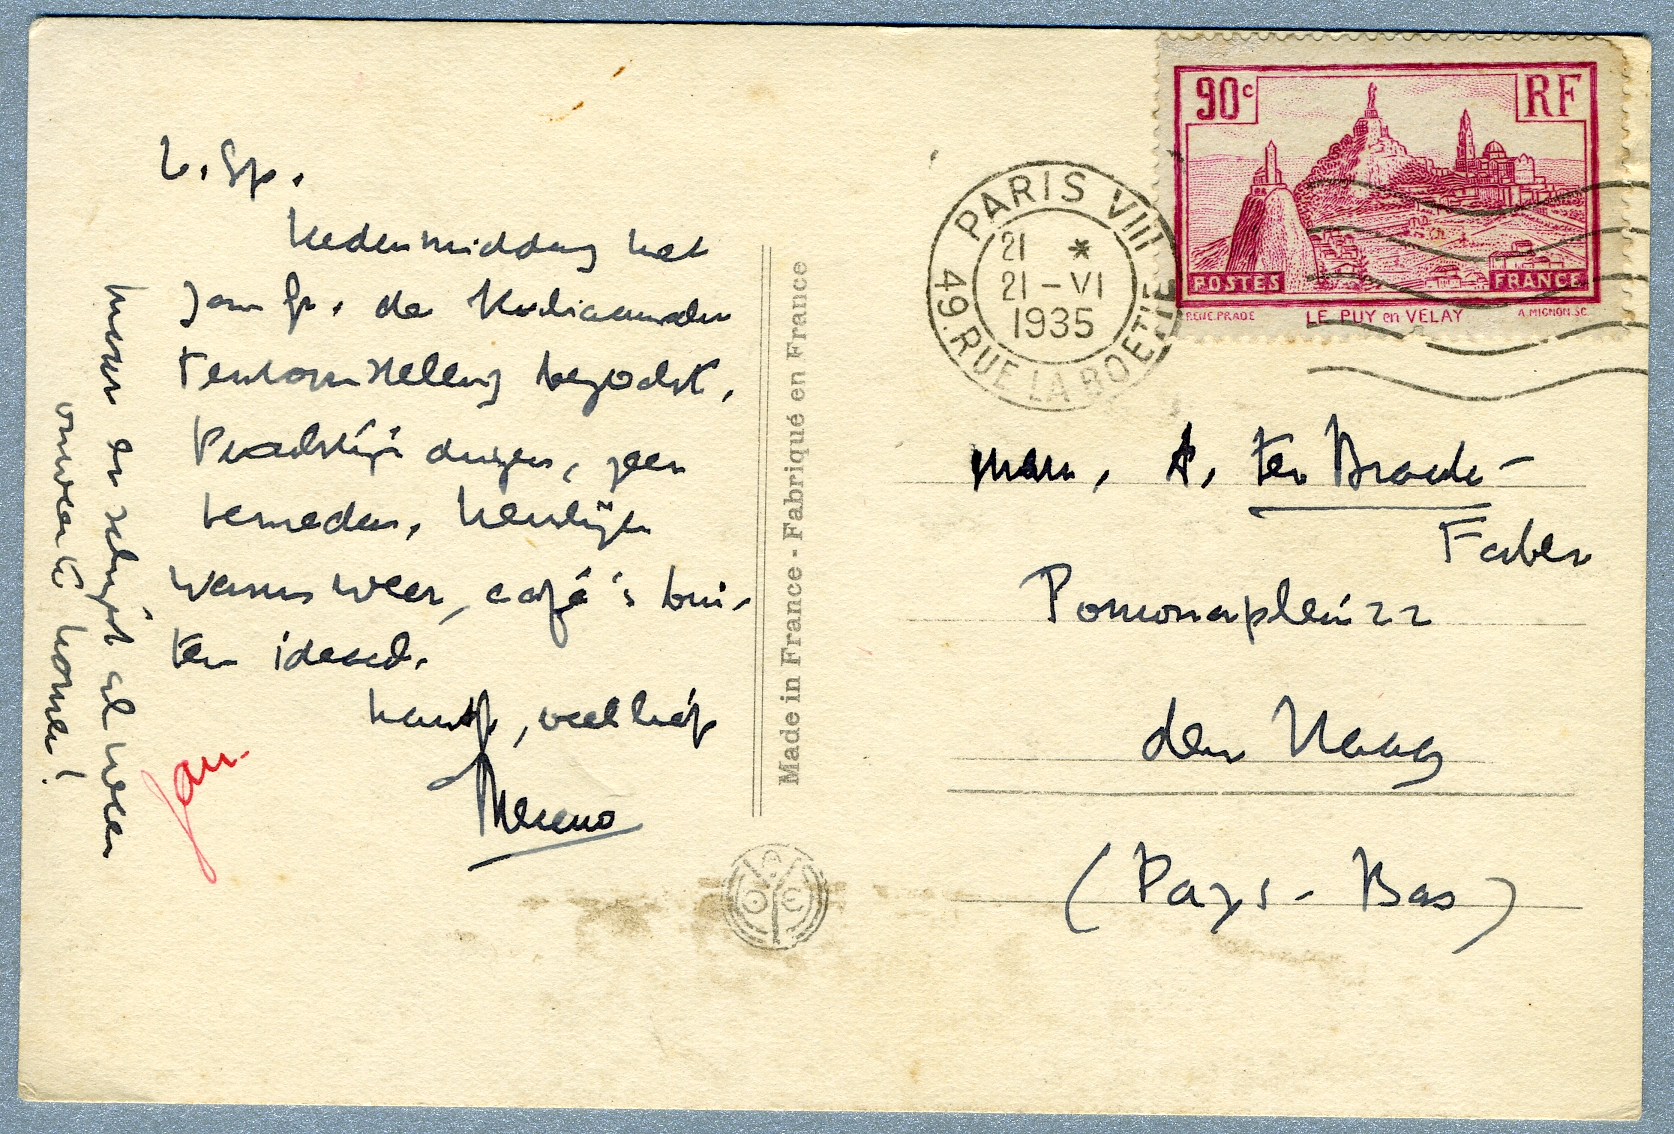 L. Sp.
Hedenmiddag met
Jan Gr. de Italiaansche
Tentoonstelling bezocht.
Prachtige dingen, geen
beneden. Heerlijk
warm weer, café's bui-
ten ideaal.
veel liefs
Menno
Maar er schijnt al weer
onweer te komen!
Jan.
Made in France - Fabriqué en France
90c
RF
POSTES
FRANCE
RENE.PRADE
LE PUY en VELAY
A.MIGNON.SC
PARIS VIII
21 *
21 - VI
1935
49.RUE LA BOETIE
Mevr. A. ter Braak-
Faber
Pomonaplein 22
den Haag
(Pays-Bas)